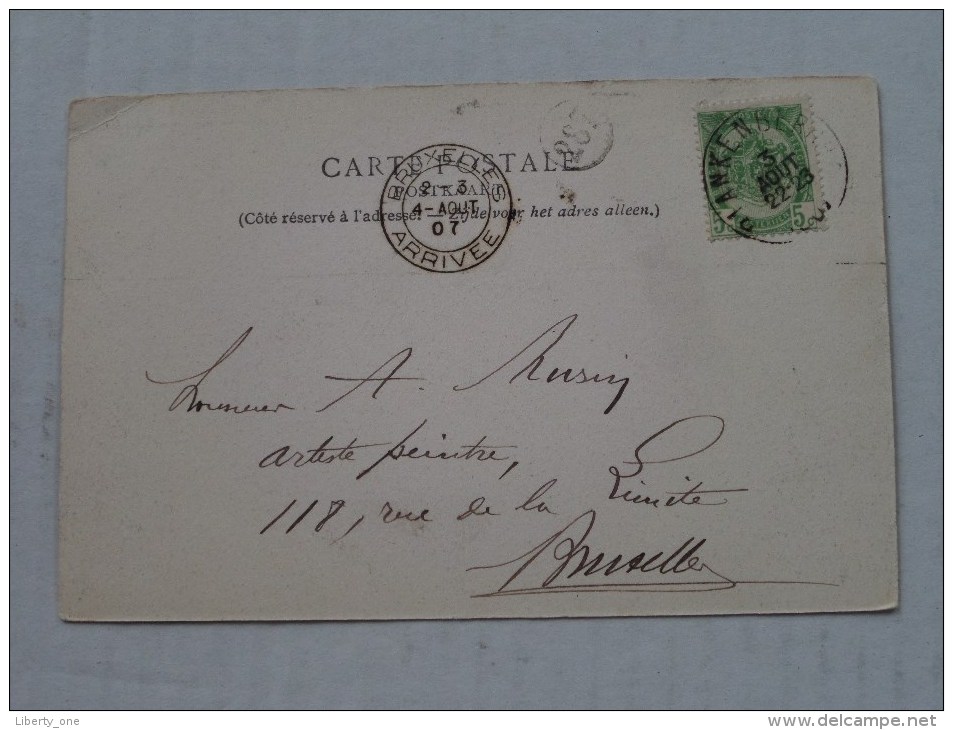 CARTE POSTALE
POSTKAART
(Côté réservé à l'adresse. — Zijde voor het adres alleen.)
BRUXELLES
2 - 3
4 - AOUT
07
ARRIVEE
BLANKENBERGHE
3
AOUT
22-23
5 5
Monsieur A. Musin
artiste peintre,
118, rue de la Limite
Bruxelles
Liberty_one
www.delcampe.net